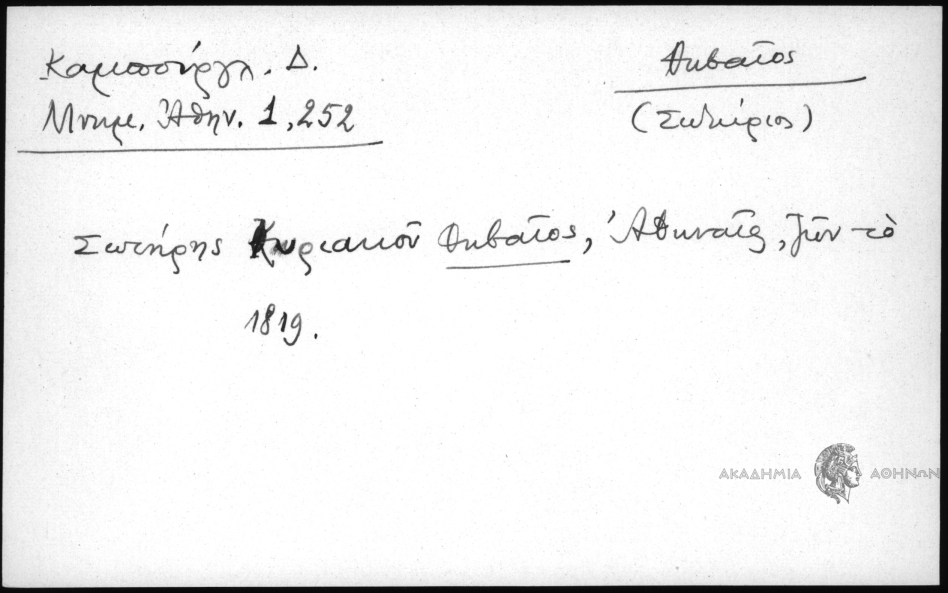 Καμπούρογλ. Δ.
Μνημ. Ἀθην. 1, 252
Θηβαῖος
(Σωτήριος)
Σωτήρης Κυριακοῦ Θηβαῖος, Ἀθηναῖος, ζῶν τὸ
1819.
ΑΚΑΔΗΜΙΑ ΑΘΗΝΩΝ